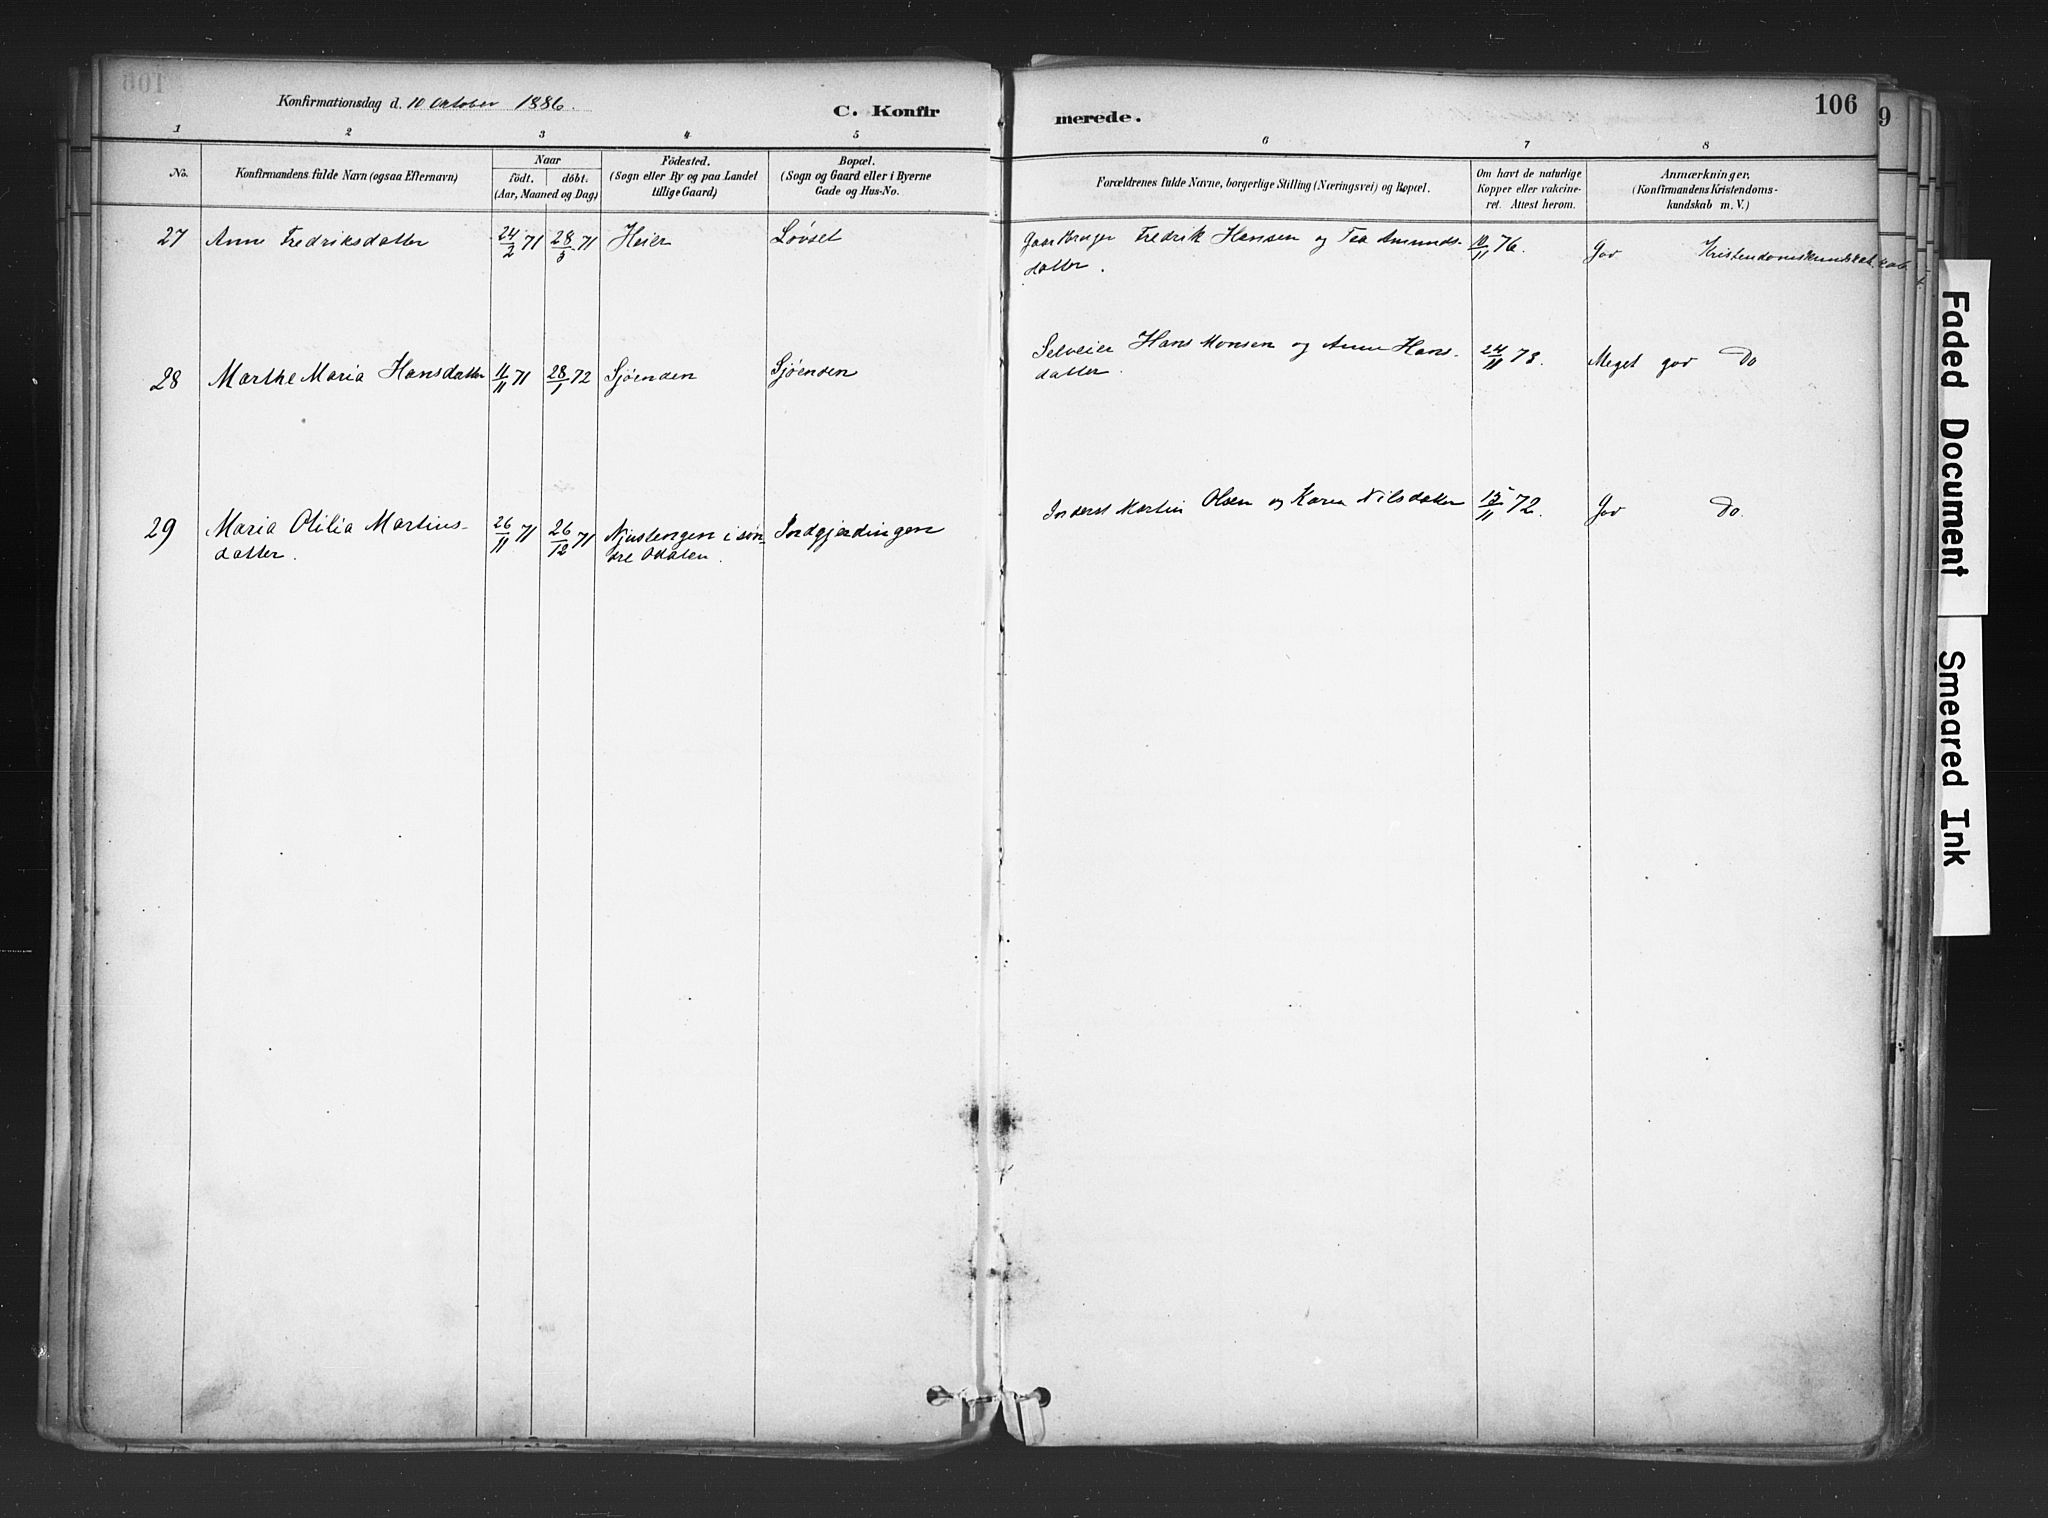 Konfirmationsdag d. 10 Oktober 1886.
C. Konfir
merede.
106
9
1 2 3 4 5 6 7 8
No.
Konfirmandens fulde Navn (ogsaa Efternavn)
Naar
födt. döbt.
(Aar, Maaned og Dag)
Födested.
(Sogn eller By og paa Landet
tillige Gaard)
Bopæl.
(Sogn og Gaard eller i Byerne
Gade og Hus-No.
Forældrenes fulde Navne, borgerlige Stilling (Næringsvei) og Bopæl.
Om havt de naturlige
Kopper eller vakcine-
ret. Attest herom.
Anmærkninger.
(Konfirmandens Kristendoms-
kundskab m. V.)
27 Anne Fredriksdatter 24/2 71 28/5 71 Heier Løvset Gaardbruger Fredrik Hansen og Tea Amunds- 10/11 76. God Kristendomskundskab
datter.
28 Marthe Maria Hansdatter 11/11 71 28/1 72 Sjøenden Sjøenden Selveier Hans Monsen og Anne Hans- 24/11 73. Meget god Do
datter.
29 Maria Otilia Martins- 26/11 71 26/12 71 Njustengen i søn- Indgjerdingen Inderst Martin Olsen og Karen Nilsdatter 15/11 72. God Do.
datter. dre Odalen.
Faded Document
Smeared Ink